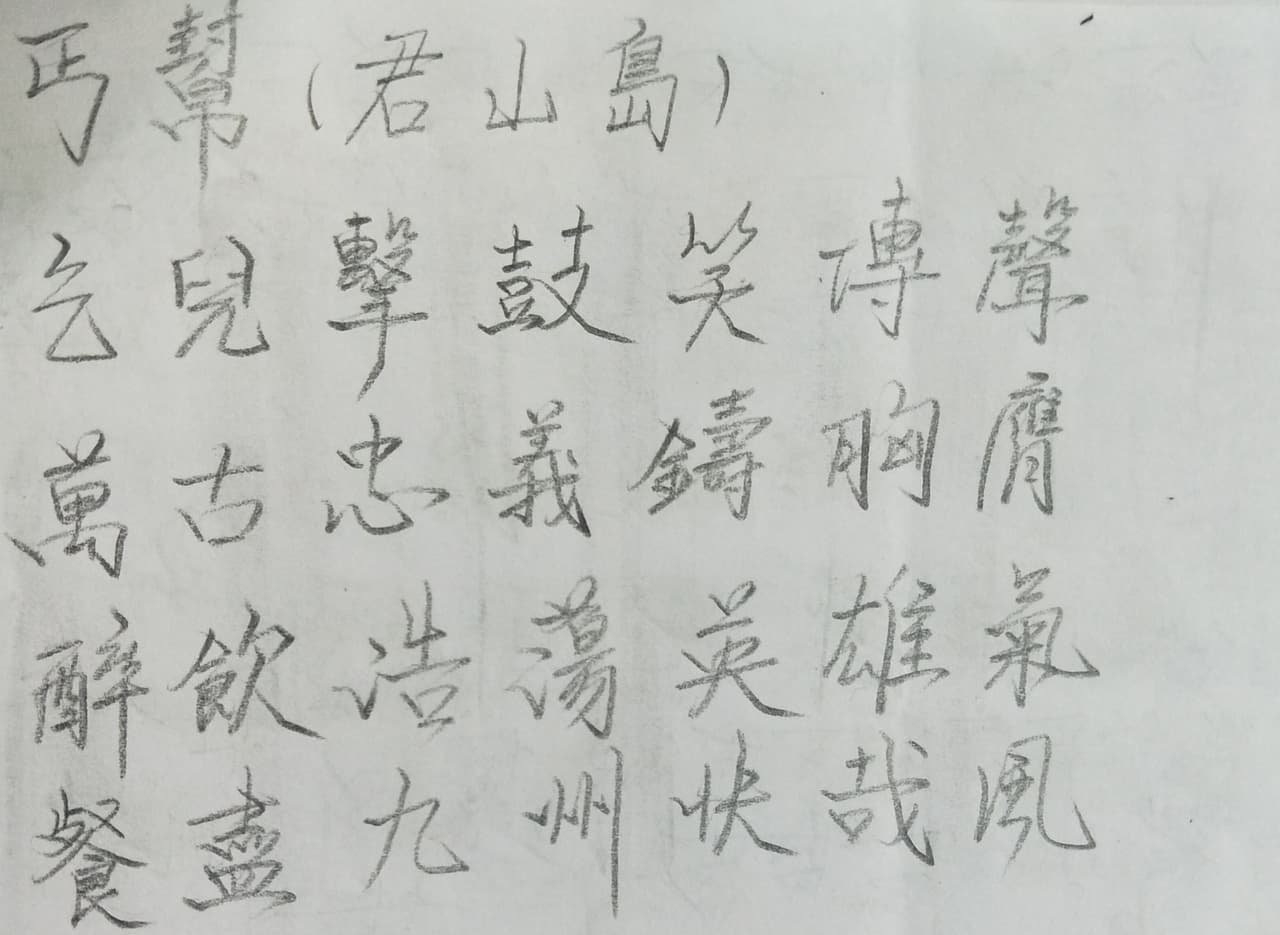 丐幫(君山島)
乞兒擊鼓笑傳聲
萬古忠義鑄胸膺
醉飲浩蕩英雄氣
餐盡九州快哉風